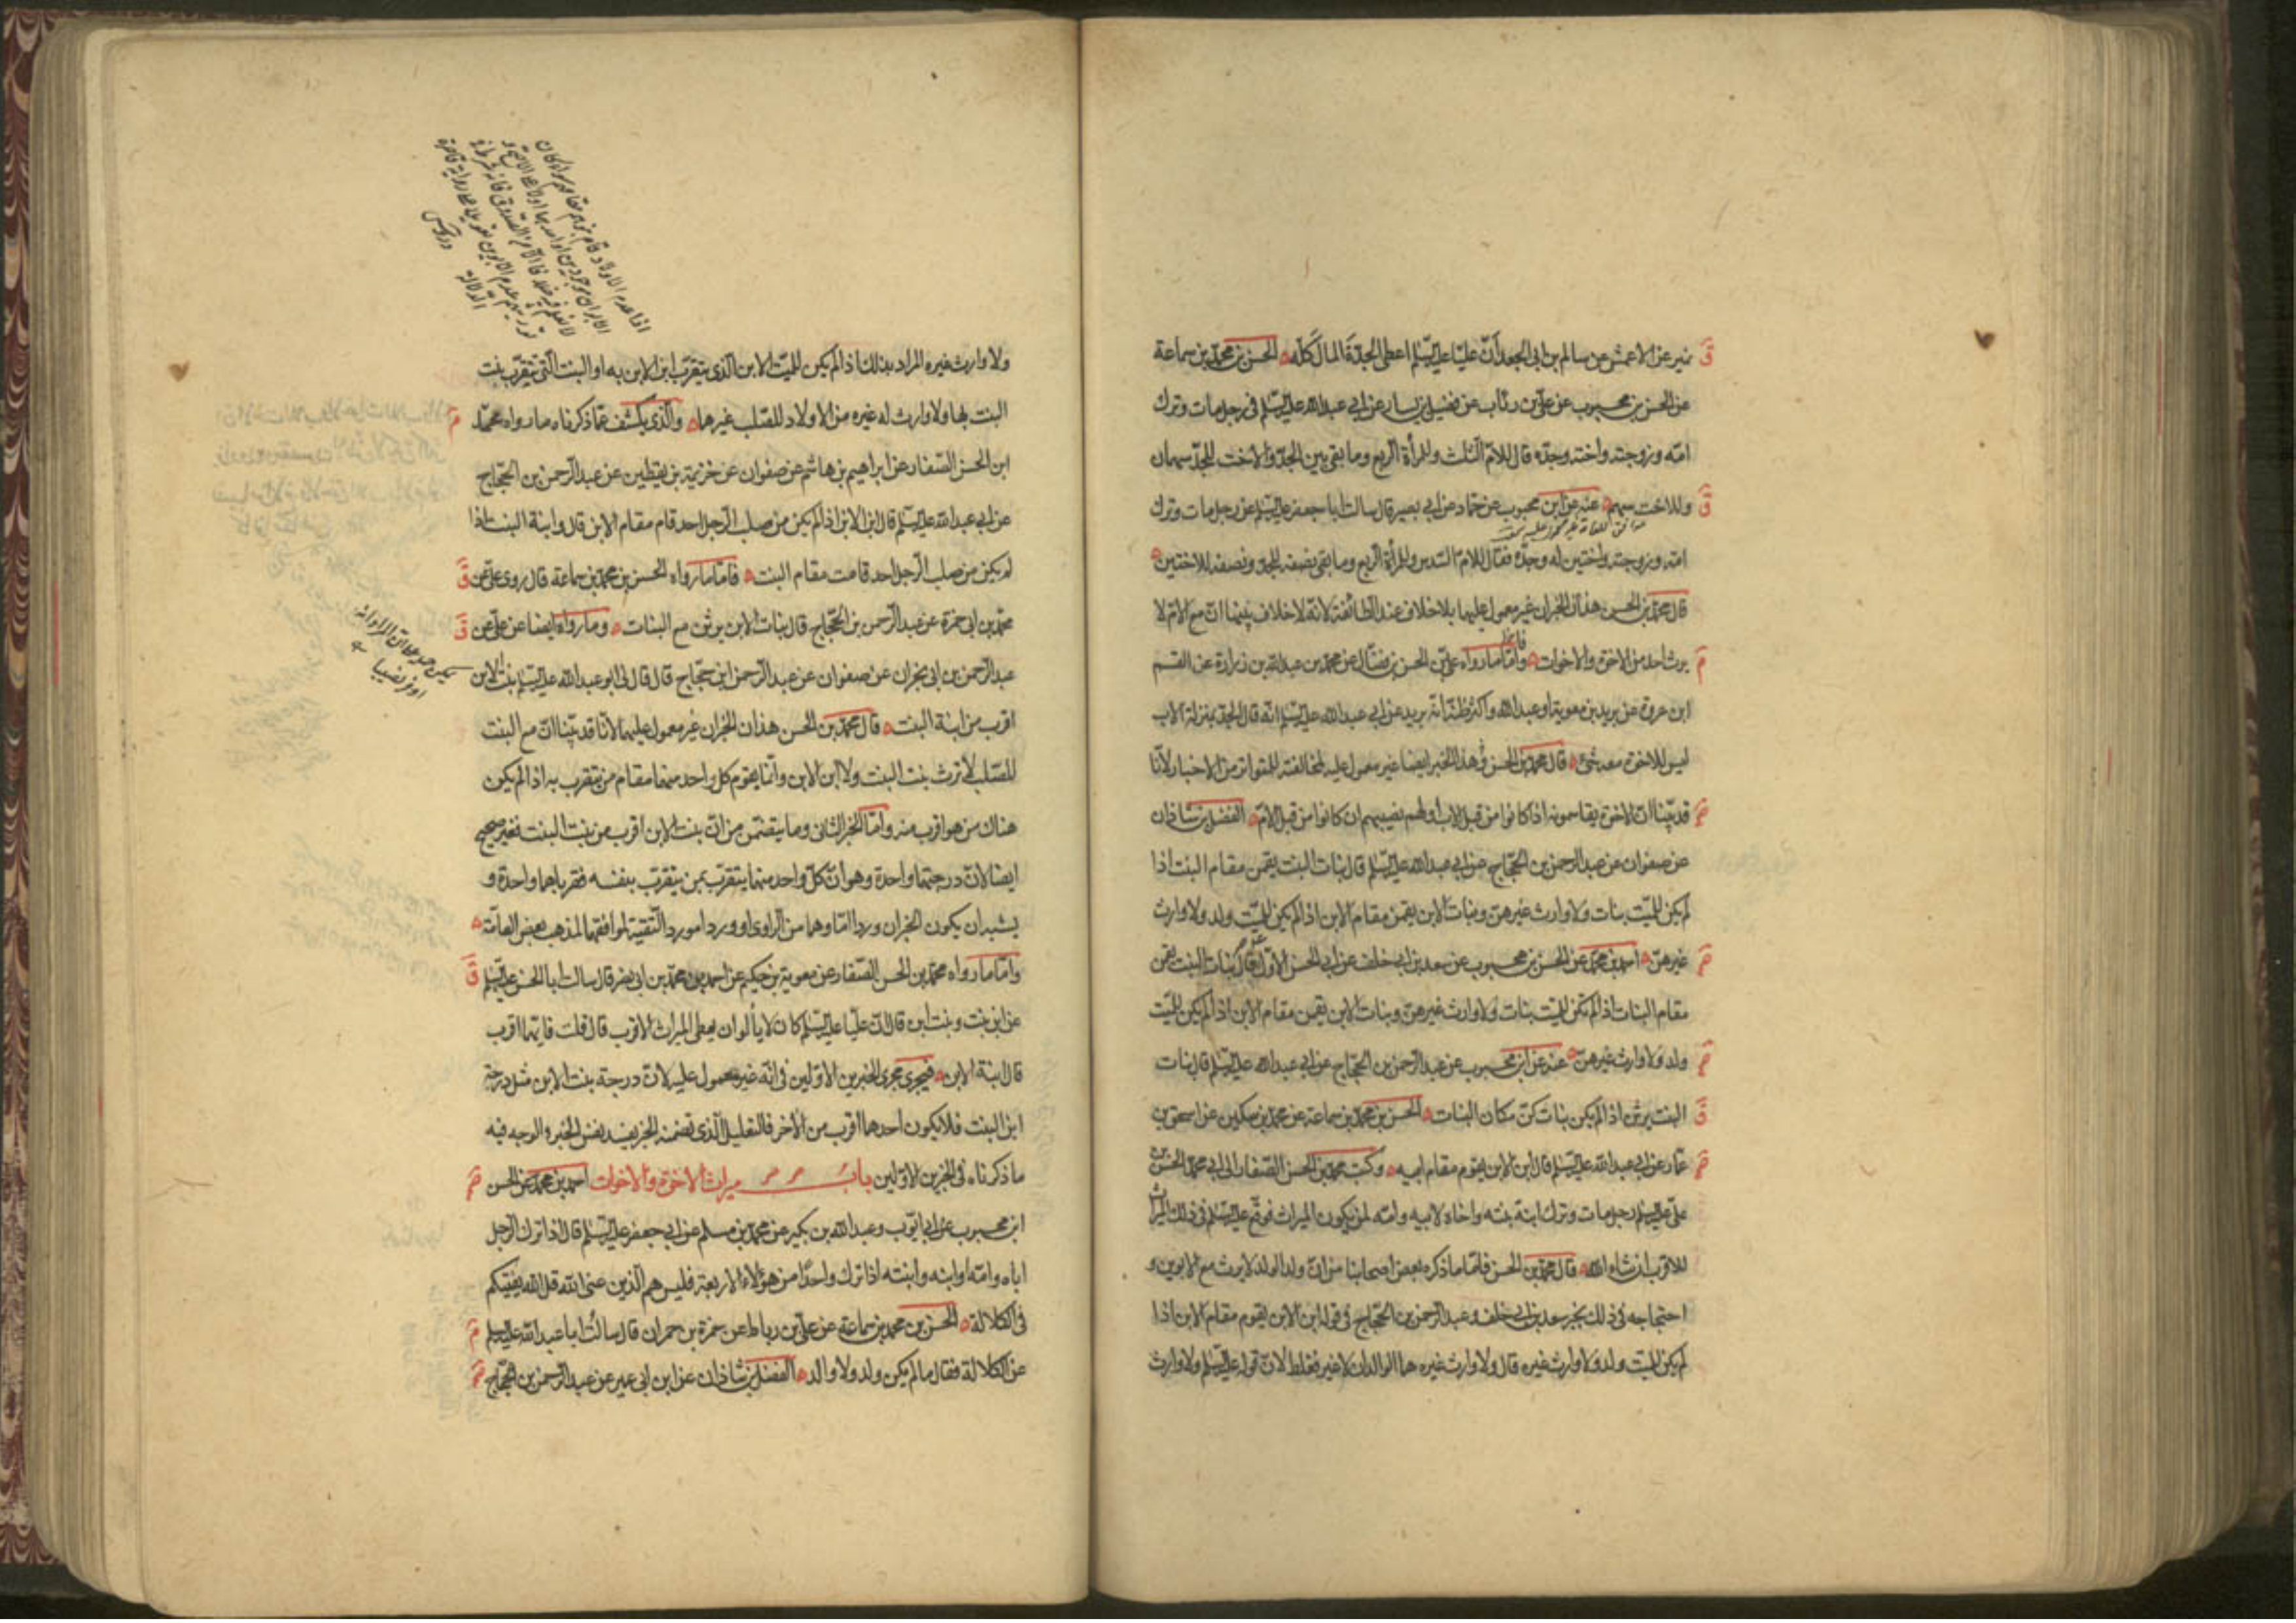 نمير عن الاعمش عن سالم بن ابى الجعد انّ عليّا عليه السّلم اعطى الجدّة المال كلّه الحسن بن محمّد بن سماعة
عن الحسن بن محبوب عن علىّ بن رئاب عن فضيل بن يسار عن ابى عبد الله عليه السّلم فى رجل مات وترك
امّه وزوجته واخته وجدّه قال للامّ الثلث وللمرأة الربع وما بقى بين الجدّ والاخت للجدّ سهمان
وللاخت سهم عنه عن ابن محبوب عن حمّاد عن ابى بصير قال سالت ابا جعفر عليه السّلم عن رجل مات وترك
امّه وزوجته واختين له وجدّه فقال للامّ السّدس وللمرأة الربع وما بقى نصفه للجدّ ونصفه للاختين
قال محمّد بن الحسن هذان الخبران غير معمول عليهما بلا خلاف عند الطائفة لانّه لا خلاف بينهما انّ مع الامّ لا
يرث احد من الاخوة والاخوات وامّا ما رواه علىّ بن الحسن بن فضّال عن محمّد بن عبد الله بن زرارة عن القسم
ابن عروة عن بريد بن معوية او عبد الله واكثر ظنّى انّه بريد عن ابى عبد الله عليه السّلم انّه قال الجدّ بمنزلة الاب
ليس للاخوة معه شئ قال محمّد بن الحسن وهذا الخبر ايضا غير معمول عليه لمخالفته للمتواتر من الاخبار لانّا
قد بيّنا انّ الاخوة يقاسمونه اذا كانوا من قبل الاب او لهم نصيبهم ان كانوا من قبل الامّ الفضل بن شاذان
عن صفوان عن عبد الرحمن بن الحجّاج عن ابى عبد الله عليه السّلم قال بنات البنت يقمن مقام البنت اذا
لم يكن للميّت بنات ولا وارث غيرهنّ وبنات الابن يقمن مقام الابن اذا لم يكن للميّت ولد ولا وارث
غيرهنّ احمد بن محمّد عن الحسن بن محبوب عن سعد بن ابى خلف عن ابى الحسن الاوّل قال بنات البنت يقمن
مقام البنات اذا لم تكن للميّت بنات ولا وارث غيرهنّ وبنات الابن يقمن مقام الابن اذا لم يكن للميّت
ولد ولا وارث غيرهنّ عنه عن ابن محبوب عن عبد الرّحمن بن الحجّاج عن ابى عبد الله عليه السّلم قال بنات
البنت يرثن اذا لم يكن بنات كنّ مكان البنات الحسن بن محمّد بن سماعة عن محمّد بن سكين عن اسحق بن
عمّار عن ابى عبد الله عليه السّلم قال ابن الابن يقوم مقام ابيه وكتب محمّد بن الحسن الصّفار الى ابى محمّد الحسن بن
علىّ عليه السّلم رجل مات وترك ابنة بنته واخاه لابيه وامّه لمن يكون الميراث فوقّع عليه السّلم فى ذلك الميراث
للاقرب ان شاء الله قال محمّد بن الحسن فامّا ما ذكره بعض اصحابنا من انّ ولد الولد لا يرث مع الابوين و
احتجاجه فى ذلك بخبر سعد بن ابى خلف وعبد الرّحمن بن الحجّاج فى قوله ابن الابن يقوم مقام الابن اذا
لم يكن للميّت ولد ولا وارث غيره قال ولا وارث غيره هما الوالدان لا غير فغلط لانّ قوله عليه السّلم ولا وارث
ولا وارث غيره المراد بذلك اذا لم يكن للميّت الابن الّذى يتقرّب ابن الابن به او البنت الّتى تتقرّب بنت
البنت بها ولا وارث له غيره من الاولاد للصّلب غيرهما والّذى يكشف عمّا ذكرناه ما رواه محمّد
ابن الحسن الصّفار عن ابراهيم بن هاشم عن صفوان عن خزيمة بن يقطين عن عبد الرّحمن بن الحجّاج
عن ابى عبد الله عليه السّلم قال ابن الابن اذا لم يكن من صلب الرّجل احد قام مقام الابن قال وابنة البنت اذا
لم يكن من صلب الرّجل احد قامت مقام البنت فامّا ما رواه الحسن بن محمّد بن سماعة قال روى علىّ عن
محمّد بن ابى حمزة عن عبد الرّحمن بن الحجّاج قال بنات الابن يرثن مع البنات وما رواه ايضا عن علىّ عن
عبد الرّحمن بن ابى نجران عن صفوان عن عبد الرّحمن ابن حجّاج قال قال لى ابو عبد الله عليه السّلم بنت الابن
اقرب من ابنة البنت قال محمّد بن الحسن هذان الخبران غير معمول عليهما لانّا قد بيّنا انّ مع البنت
للصّلب لا ترث بنت البنت ولا ابن الابن وانّما يقوم كل واحد منهما مقام من يتقرب به اذا لم يكون
هناك من هو اقرب منه وامّا الخبر الثانى وما يتضمّن من انّ بنت الابن اقرب من بنت البنت فغير صحيح
ايضا لانّ درجتهما واحدة وهو انّ كلّ واحد منهما يتقرّب بمن يتقرّب بنفسه فقرباهما واحدة و
يشبه ان يكون الخبران وردا امّا وهما من الرّاوى او وردا مورد التّقيّة لموافقتهما لمذهب بعض العامّة
وامّا ما رواه محمّد بن الحسن الصّفار عن معوية بن حكيم عن احمد بن محمّد بن ابى نصر قال سالت ابا الحسن عليه السّلم
عن ابن بنت وبنت ابن قال انّ عليّا عليه السّلم كان لا يألوا ان يعطى الميراث الاقرب قال قلت فايّهما اقرب
قال ابنة الابن فيجرى مجرى الخبرين الاوّلين فى انّه غير معمول عليه لانّ درجة بنت الابن مثل درجة
ابن البنت فلا يكون احدهما اقرب من الاخر فالتعليل الّذى تضمنه الخبر يفسد نفس الخبر والوجه فيه
ما ذكرناه فى الخبرين الاوّلين باب ميراث الاخوة والاخوات احمد بن محمّد عن الحسن
ابن محبوب عن ابى ايّوب وعبد الله بن بكير عن محمّد بن مسلم عن ابى جعفر عليه السّلم قال اذا ترك الرّجل
اباه وامّه او ابنه وابنته اذا ترك واحدًا من هؤلاء الاربعة فليس هم الّذين عنى الله قل الله يفتيكم
فى الكلالة الحسن بن محمّد بن سماعة عن علىّ بن رباط عن حمزة بن حمران قال سالت ابا عبد الله عليه السلم
عن الكلالة فقال ما لم يكن ولد ولا والد الفضل بن شاذان عن ابن ابى عمير عن عبد الرّحمن بن الحجّاج